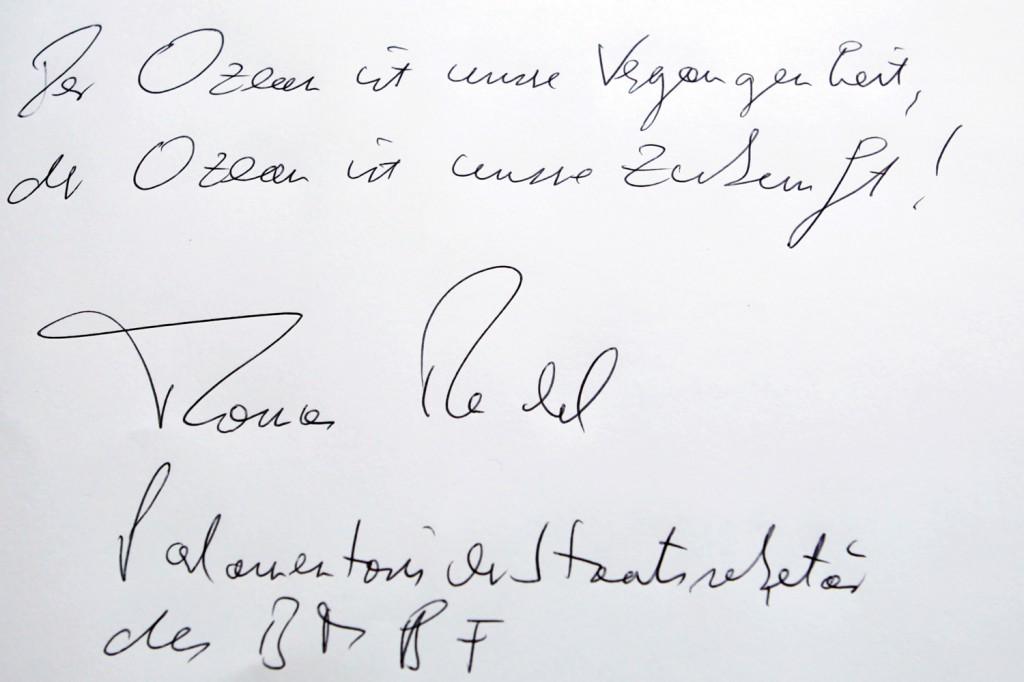 Der Ozean ist unsere Vergangenheit,
der Ozean ist unsere Zukunft!
Thomas Rachel
Parlamentarischer Staatssekretär
des BMBF